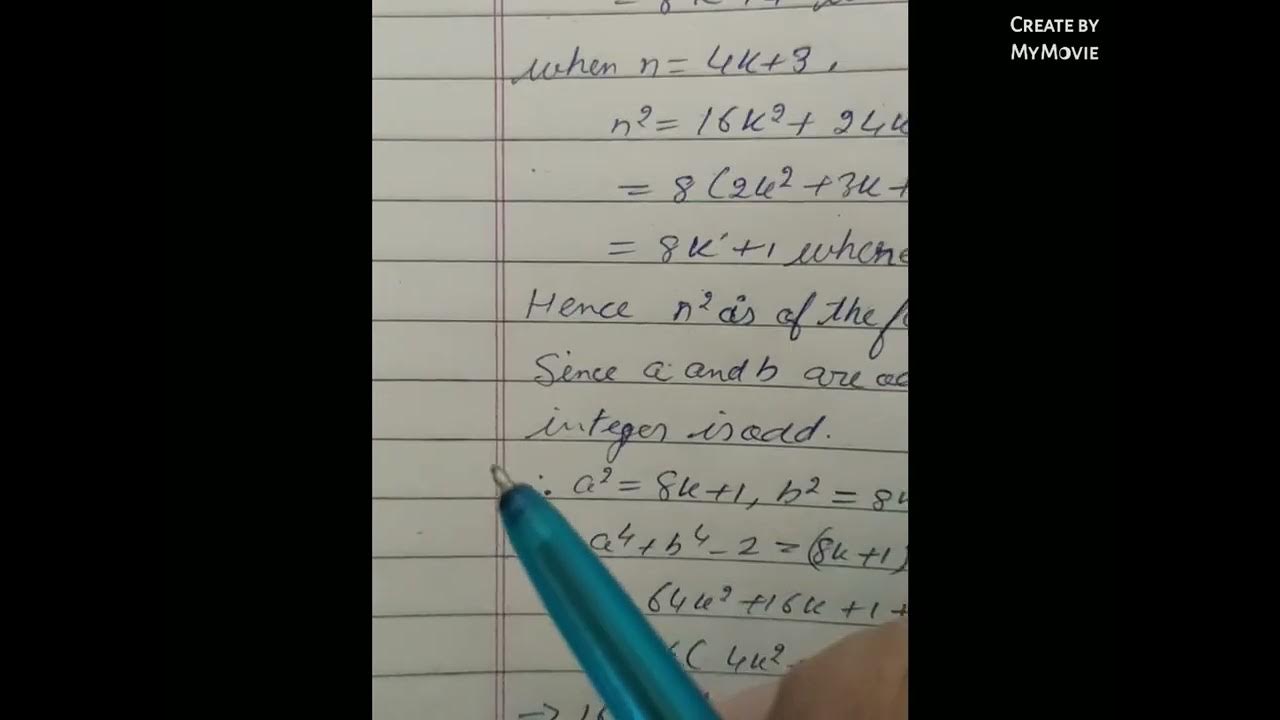 CREATE BY
MYMOVIE
when n = 4k+3,
n² = 16k² + 24k
= 8(2k² + 3k +
= 8k' + 1 where
Hence n² is of the
Since a and b are
integer is odd.
∴ a² = 8k+1, b² = 8k
a⁴ + b⁴ - 2 = (8k+1)
64k² + 16k + 1 +
( 4k²
⇒ 16